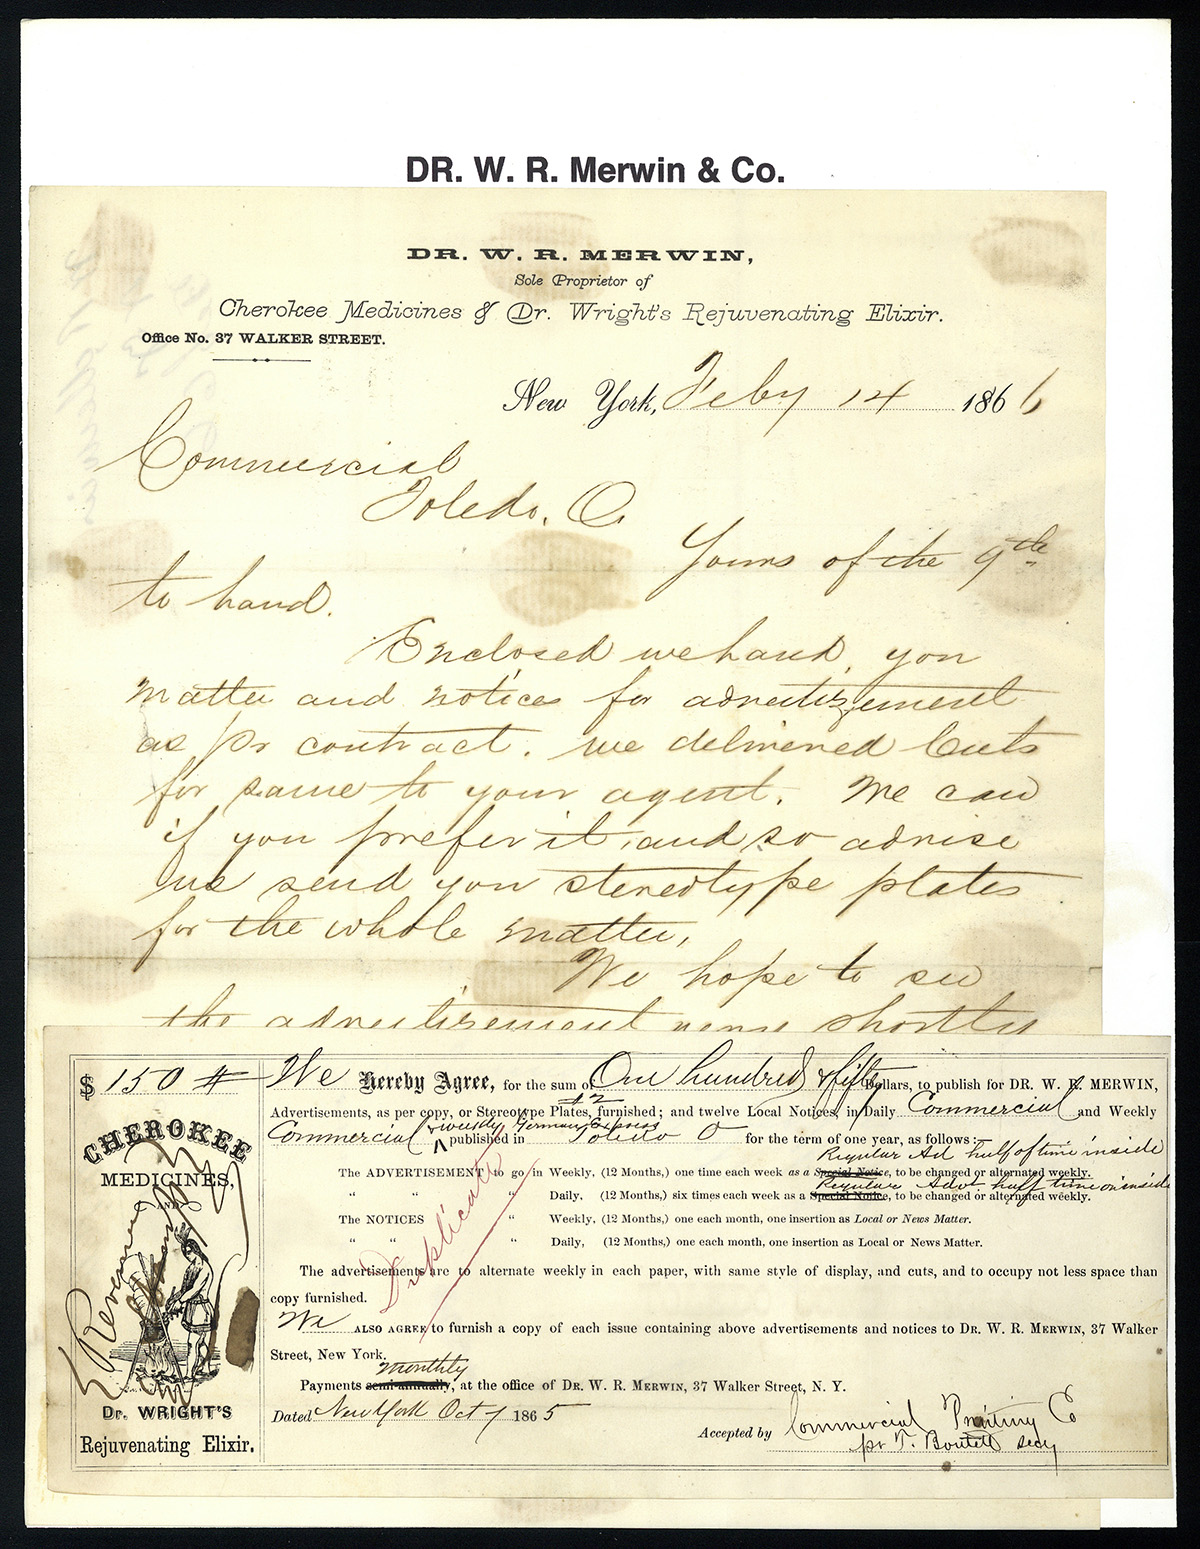 DR. W. R. Merwin & Co.
DR. W. R. MERWIN,
Sole Proprietor of
Cherokee Medicines & Dr. Wright's Rejuvenating Elixir.
Office No. 37 WALKER STREET.
New York, Feby 14 1866
Commercial
Toledo, O.
Yours of the 9th
to hand.
Enclosed we hand you
matter and notices for advertizement
as pr contract. we delivered Cuts
for same to your agent. We can
if you prefer it, and so advise
us send you stereotype plates
for the whole matter,
We hope to see
the advertisement shortly
$ 150 #
We Hereby Agree, for the sum of One hundred & fifty Dollars, to publish for DR. W. R. MERWIN,
Advertisements, as per copy, or Stereotype Plates, furnished; and twelve Local Notices, in Daily Commercial and Weekly
& weekly German Express
Commercial published in Toledo O for the term of one year, as follows:—
Regular Ad half of time inside
The ADVERTISEMENT to go in Weekly, (12 Months,) one time each week as a Special Notice, to be changed or alternated weekly.
Regular Advt half time on inside
" " " Daily, (12 Months,) six times each week as a Special Notice, to be changed or alternated weekly.
The NOTICES " Weekly, (12 Months,) one each month, one insertion as Local or News Matter.
" " " Daily, (12 Months,) one each month, one insertion as Local or News Matter.
Duplicate
The advertisements are to alternate weekly in each paper, with same style of display, and cuts, and to occupy not less space than
copy furnished.
We ALSO AGREE to furnish a copy of each issue containing above advertisements and notices to DR. W. R. MERWIN, 37 Walker
Street, New York.
monthly
Payments semi-annually, at the office of DR. W. R. MERWIN, 37 Walker Street, N. Y.
Dated New York Oct 7 1865
Accepted by Commercial Printing Co
pr T. Boutell secy
CHEROKEE
MEDICINES,
AND
Revenue
Dr. WRIGHT'S
Rejuvenating Elixir.